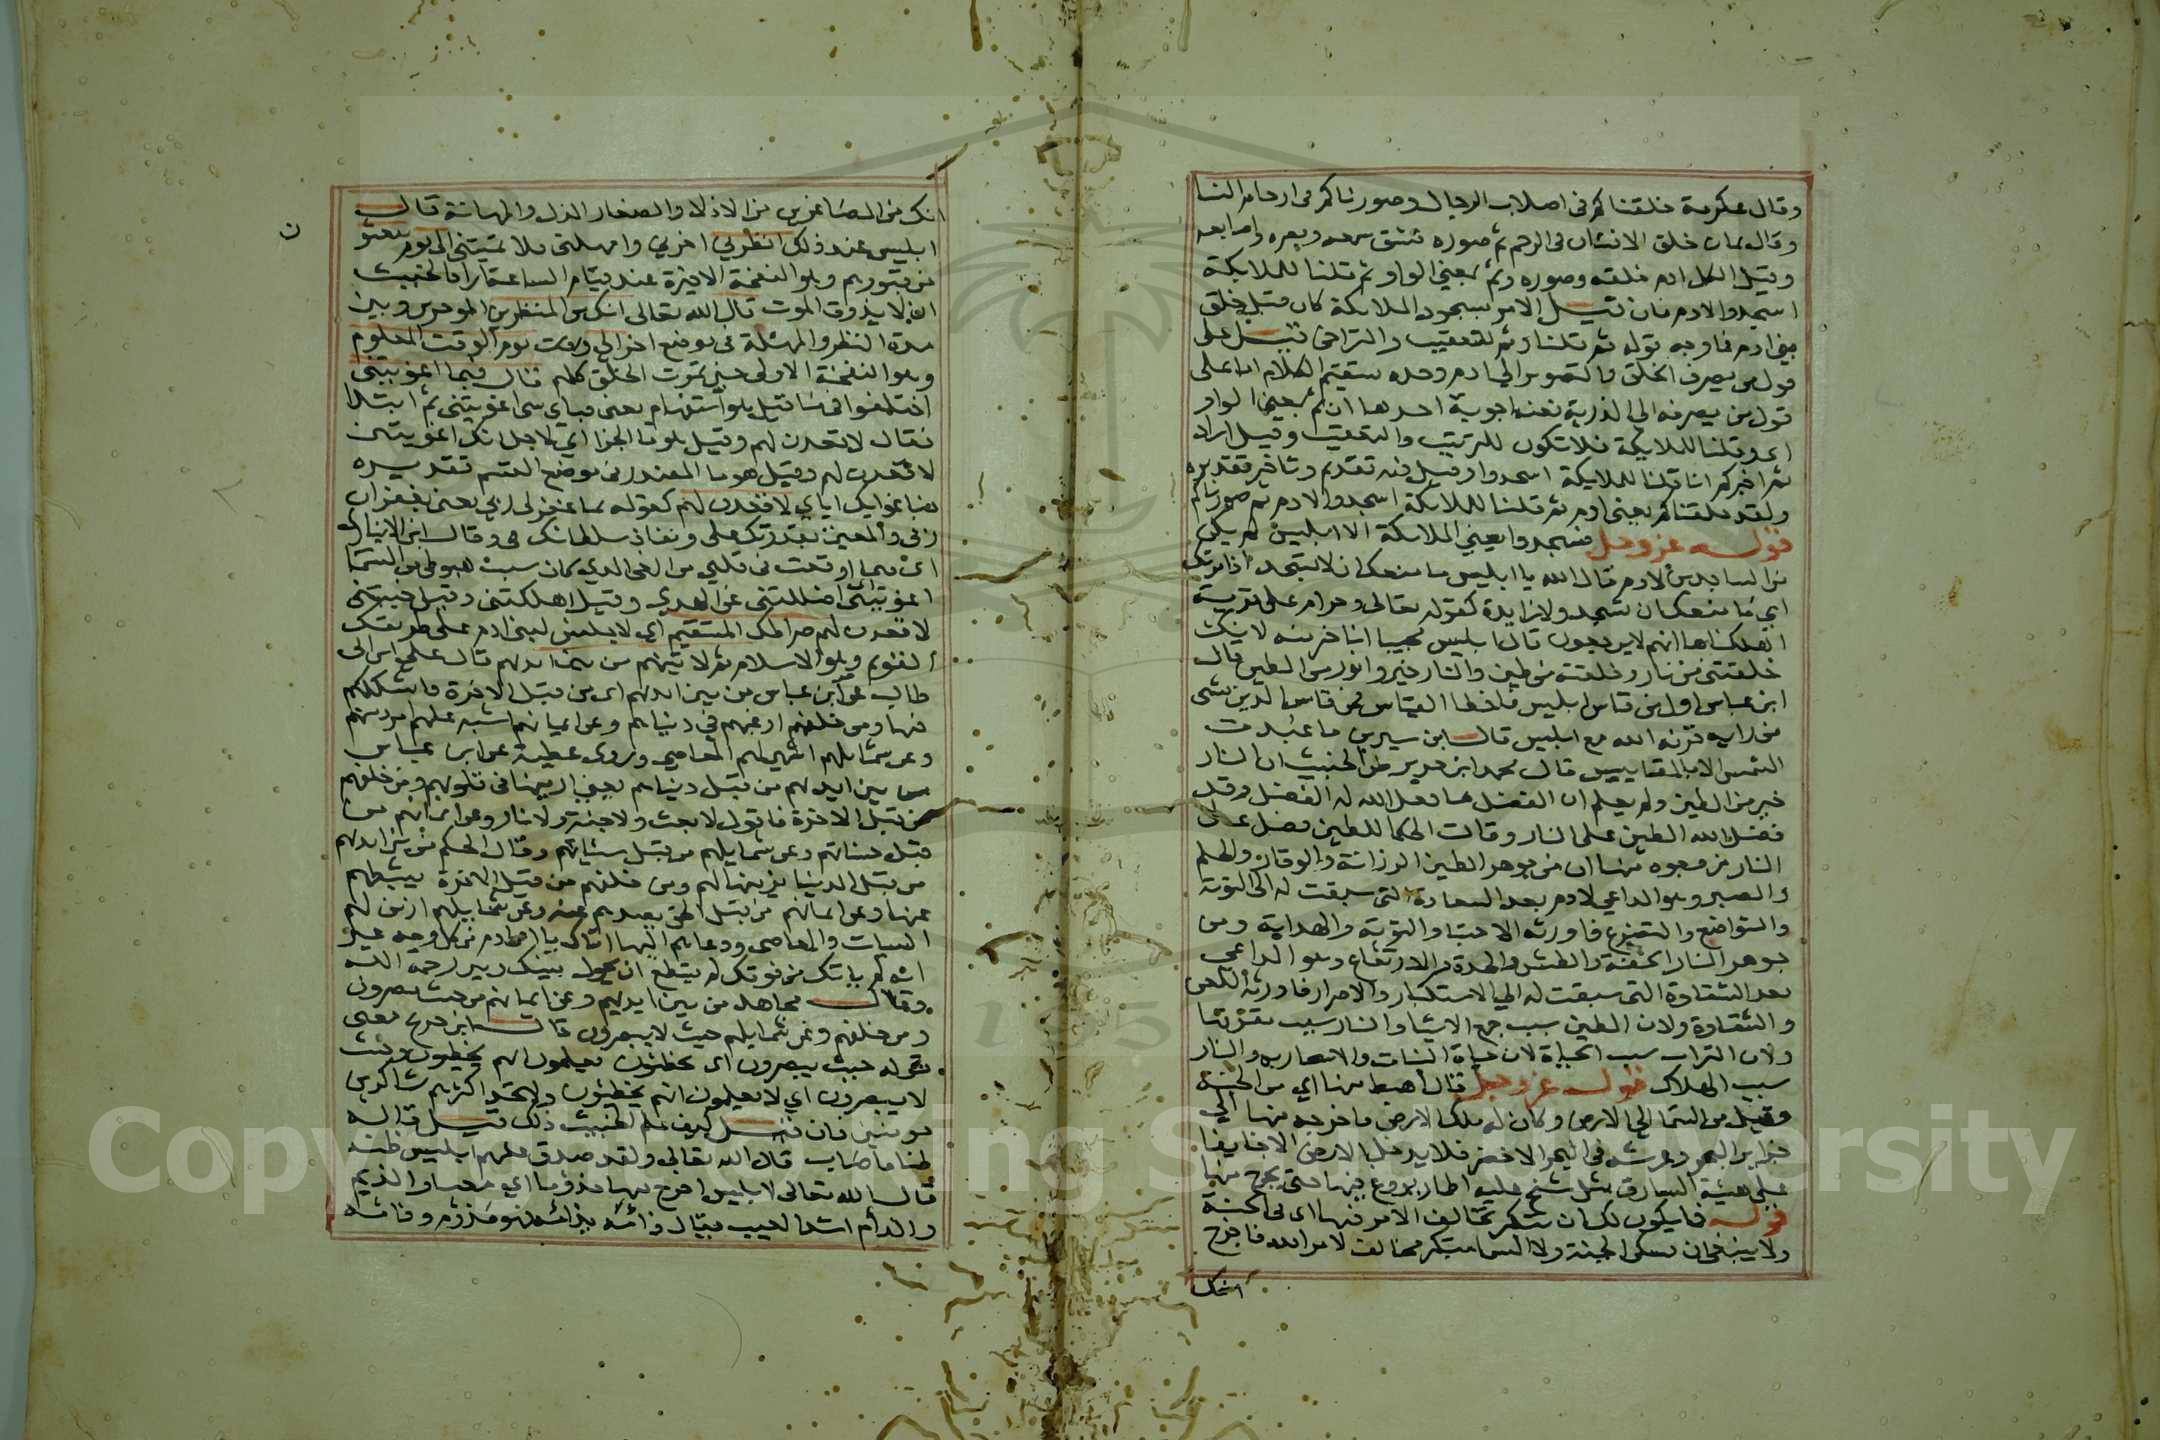 وقال عكرمة خلقناكم في اصلاب الرجال وصورناكم في ارحام النسا
وقال يمان خلق الانسان في الرحم ثم صوره فشق سمعه وبصره واصابعه
وقيل الكل ادم خلقه وصوره وثم بمعني الواو ثم قلنا للملايكة
اسجدوا لادم فان قيل الامر بسجود الملايكة كان قبل خلق
بني ادم فما وجه قوله ثم قلنا وثم للتعقيب والتراخي قيل على
قول من يصرف الخلق والتصوير الي ادم وحده يستقيم الكلام اما على
قول من يصرفه الى الذرية فعنه اجوبة احدها ان ثم بمعني الواو
اي وقلنا للملايكة فلا تكون للترتيب والتعقيب وقيل اراد
ثم اخبركم انا قلنا للملايكة اسجدوا وقيل فيه تقديم وتاخير تقديره
ولقد خلقناكم يعني ادم ثم قلنا للملايكة اسجدوا لادم ثم صورناكم
قوله عز وجل فسجدوا يعني الملايكة الا ابليس لم يكن
من الساجدين لادم قال الله يا ابليس ما منعك ان لا تسجد اذ امرتك
اي ما منعك ان تسجد ولا زايدة كقوله تعالى وحرام على قرية
اهلكناها انهم لا يرجعون قال ابليس مجيبا انا خير منه لانك
خلقتني من نار وخلقته من طين والنار خير وانور من الطين قال
ابن عباس اول من قاس ابليس فاخطا القياس فمن قاس الدين بشي
من رايه قرنه الله مع ابليس قال ابن سيرين ما عبدت
الشمس الا بالمقاييس قال محمد ابن جرير ظن الخبيث ان النار
خير من الطين ولم يعلم ان الفضل لما جعل الله له الفضل وقد
فضل الله الطين على النار وقالت الحكما للطين فضل على
النار من وجوه منها ان من جوهر الطين الرزانة والوقار والحلم
والصبر وهو الداعي لادم بعد السعادة التي سبقت له الى التوبة
والتواضع والتضرع فاورثه الاجتبا والتوبة والهداية ومن
جوهر النار الخفة والطيش والحدة والارتفاع وهو الداعي
بعد الشقاوة التي سبقت له الي الاستكبار والاصرار فاورثه اللعن
والشقاوة ولان الطين سبب جمع الاشيا والنار سبب تفرقتها
ولان التراب سبب الحياة لان حياة النبات والاشجار به والنار
سبب الهلاك قوله عز وجل قال اهبط منها اي من الجنة
وقيل من السما الي الارض وكان له ملك الارض فاخرجه منها الي
جزاير البحر وعرشه في البحر الاخضر فلا يدخل الارض الا خايفا
على هيئة السارق مثل شيخ عليه اطمار يروع فيها حتى يخرج منها
قوله فما يكون لك ان تتكبر تخالف الامر فيها اي في الجنة
ولا ينبغي ان يسكن الجنة ولا السما متكبر مخالف لامر الله فاخرج
انك
انك من الصاغرين من الاذلا والصغار الذل والمهانة قال
ابليس عند ذلك انظرني اخرني وامهلني فلا تميتني الى يوم يبعثون
من قبورهم وهو النفخة الاخيرة عند قيام الساعة اراد الخبيث
ان لا يذوق الموت قال الله تعالى انك من المنظرين الموخرين وبين
مدة النظر والمهلة في موضع اخر الي يوم الوقت المعلوم
وهو النفخة الاولى حين يموت الخلق كلهم قال فبما اغويتني
اختلفوا في ما قيل هو استفهام يعني فباي شي اغويتني ثم ابتدا
فقال لاقعدن لهم وقيل هو ما الجزا اي لاجل انك اغويتني
لاقعدن لهم وقيل هو ما المصدر في موضع القسم تقديره
فباغوايك اياي لاقعدن لهم كقوله بما غفر لي ربي يعني بغفران
ربي والمعنى بقدرتك علي ونفاذ سلطانك في وقال ابن الانباري
اي فيما اوقعت في قلبي من الغي الذي كان سبب هبوطي من السما
اغويتني اضللتني عن الهدي وقيل اهلكتني وقيل خيبتني
لاقعدن لهم صراطك المستقيم اي لاجلسن لبني ادم على طريقك
القويم وهو الاسلام ثم لاتينهم من بين ايديهم قال علي ابن ابي
طالب عن ابن عباس من بين ايديهم اي من قبل الاخرة فاشككهم
فيها ومن خلفهم ارغبهم في دنياهم وعن ايمانهم اشبه عليهم امر دينهم
وعن شمايلهم اشهي لهم المعاصي وروى عطية عن ابن عباس
من بين ايديهم من قبل دنياهم يعني ازينها في قلوبهم ومن خلفهم
من قبل الاخرة فاقول لا بعث ولا جنة ولا نار وعن ايمانهم من
قبل حسناتهم وعن شمايلهم من قبل سيئاتهم وقال الحكم من بين ايديهم
من قبل الدنيا يزينها لهم ومن خلفهم من قبل الاخرة يثبطهم
عنها وعن ايمانهم من قبل الحق يصدهم عنه وعن شمايلهم ازين لهم
السيات والمعاصي ودعاهم اليها اتاك يا ابن ادم من كل وجه غير
انه لم ياتك من فوقك لم يستطع ان يحول بينك وبين رحمة الله
وقال مجاهد من بين ايديهم وعن ايمانهم من حيث يبصرون
ومن خلفهم وعن شمايلهم حيث لا يبصرون قال ابن جريج معنى
قوله حيث يبصرون اي يخطئون يعلمون انهم يخطيون وحيث
لا يبصرون اي لا يعلمون انهم يخطئون ولا تجد اكثرهم شاكرين
مومنين فان قيل كيف علم الخبيث ذلك قيل قاله
ظنا فاصاب قال الله تعالى ولقد صدق عليهم ابليس ظنه
قال الله تعالى لابليس اخرج منها مذؤما اي معيبا والذيم
والذام اشد العيب يقال ذامه يذامه فهو مذؤم وذامه